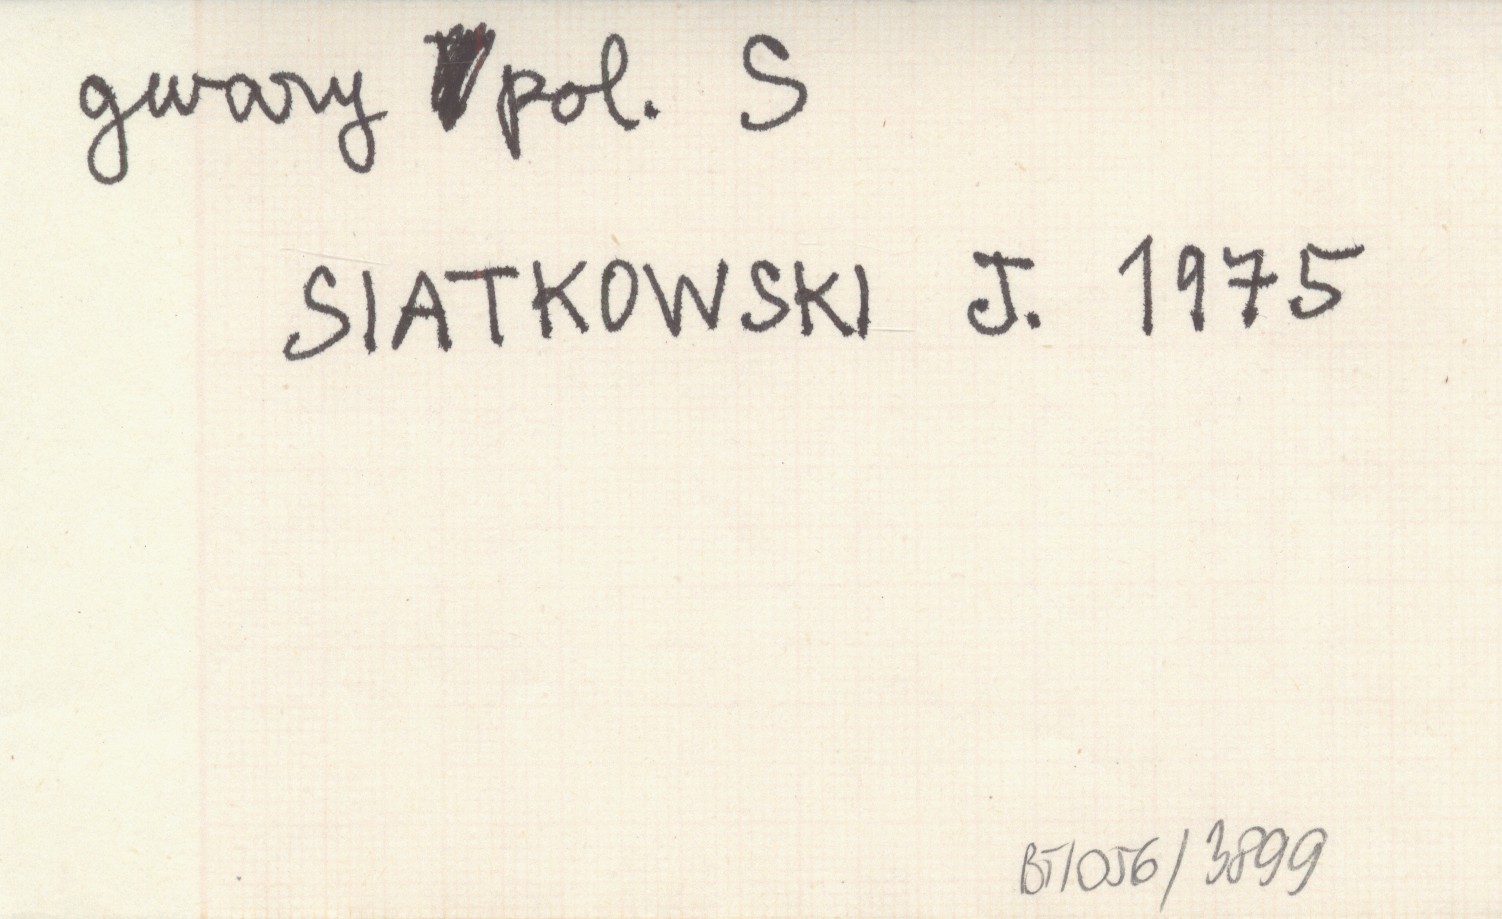 gwary pol. S
SIATKOWSKI J. 1975
BT/056/3899